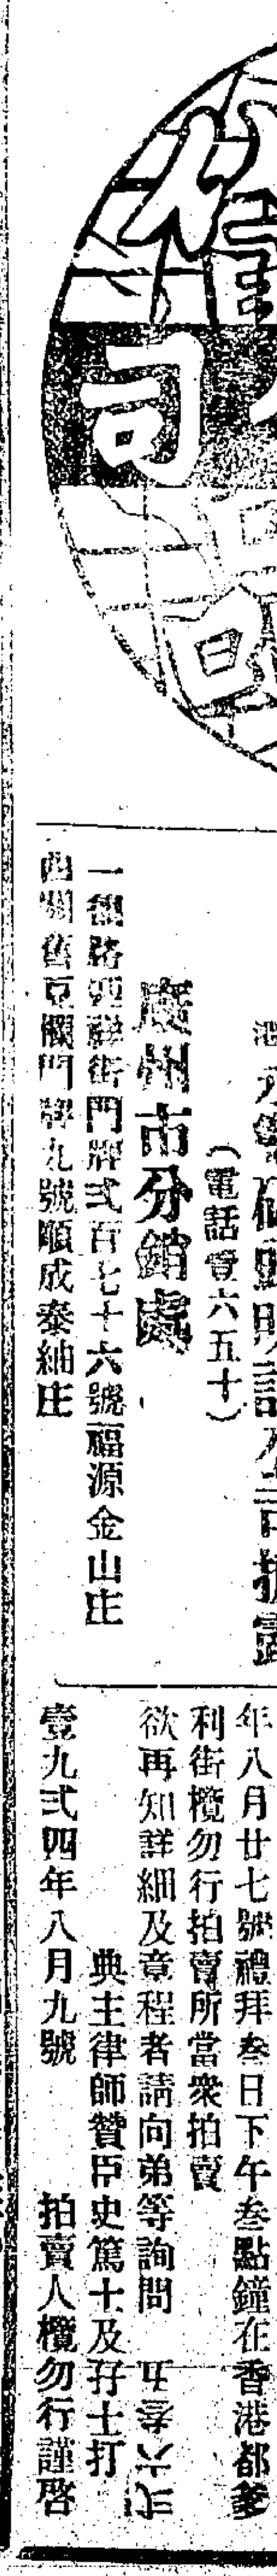 司
（電話壹六五十）
廣州市分銷處
一德路迎祥街門牌弍百七十六號福源金山庄
西關舊豆欄門牌九號順成泰紬庄
年八月廿七號禮拜叁日下午叁點鐘在香港都爹
利街欖勿行拍賣所當衆拍賣
欲再知詳細及章程者請向弟等詢問 五叁六弍
典主律師贊臣史篤士及孖士打
壹九弍四年八月九號 拍賣人欖勿行謹啓